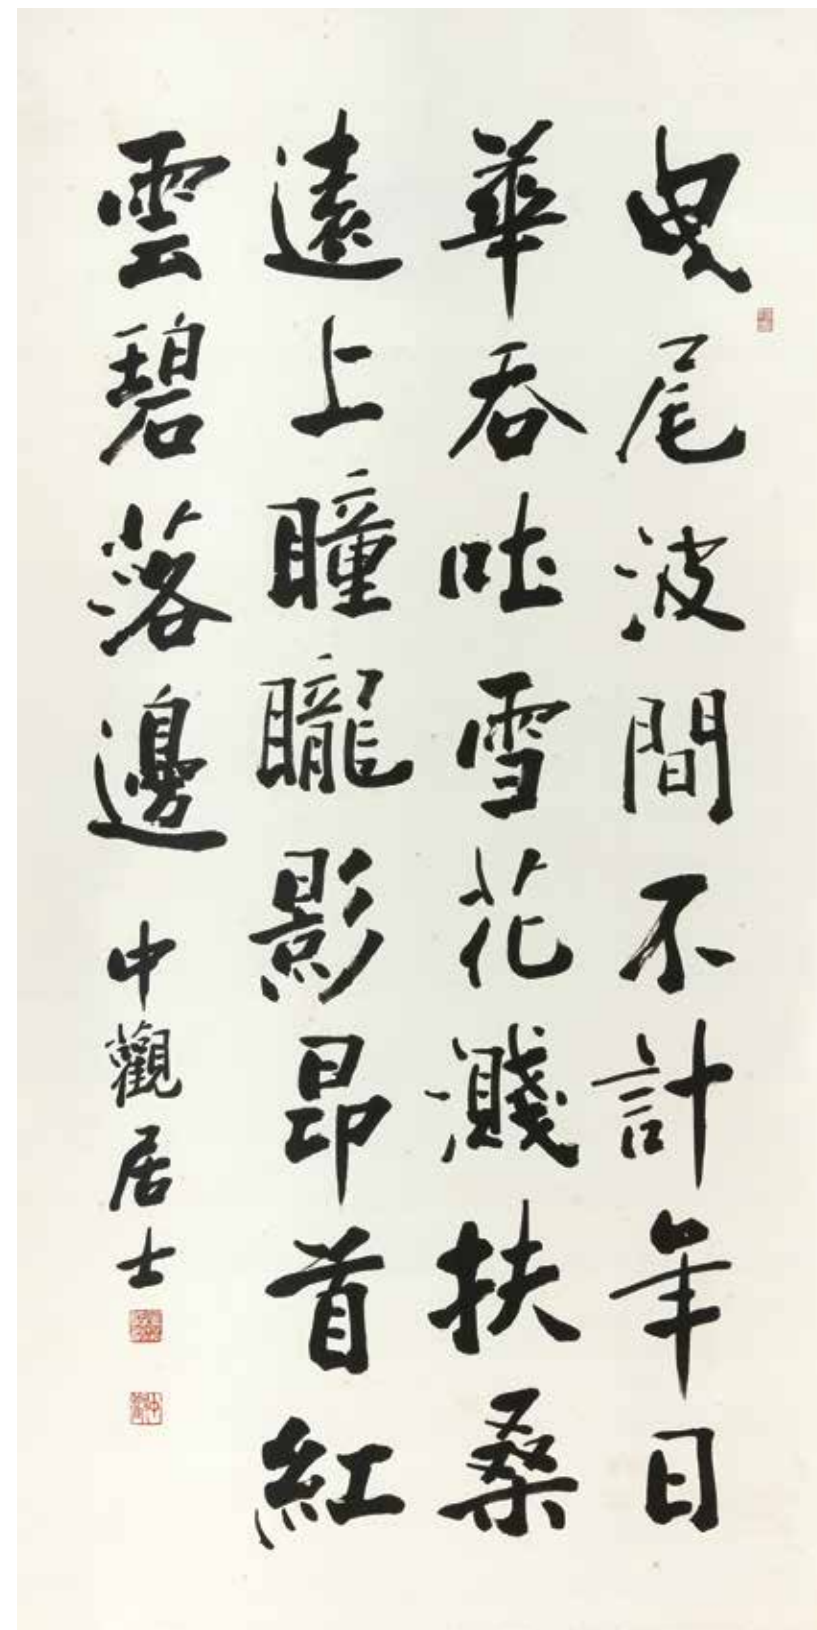 曳尾波間不計年日
華吞吐雪花濺扶桑
遠上瞳矓影昂首紅
雲碧落邊
中觀居士